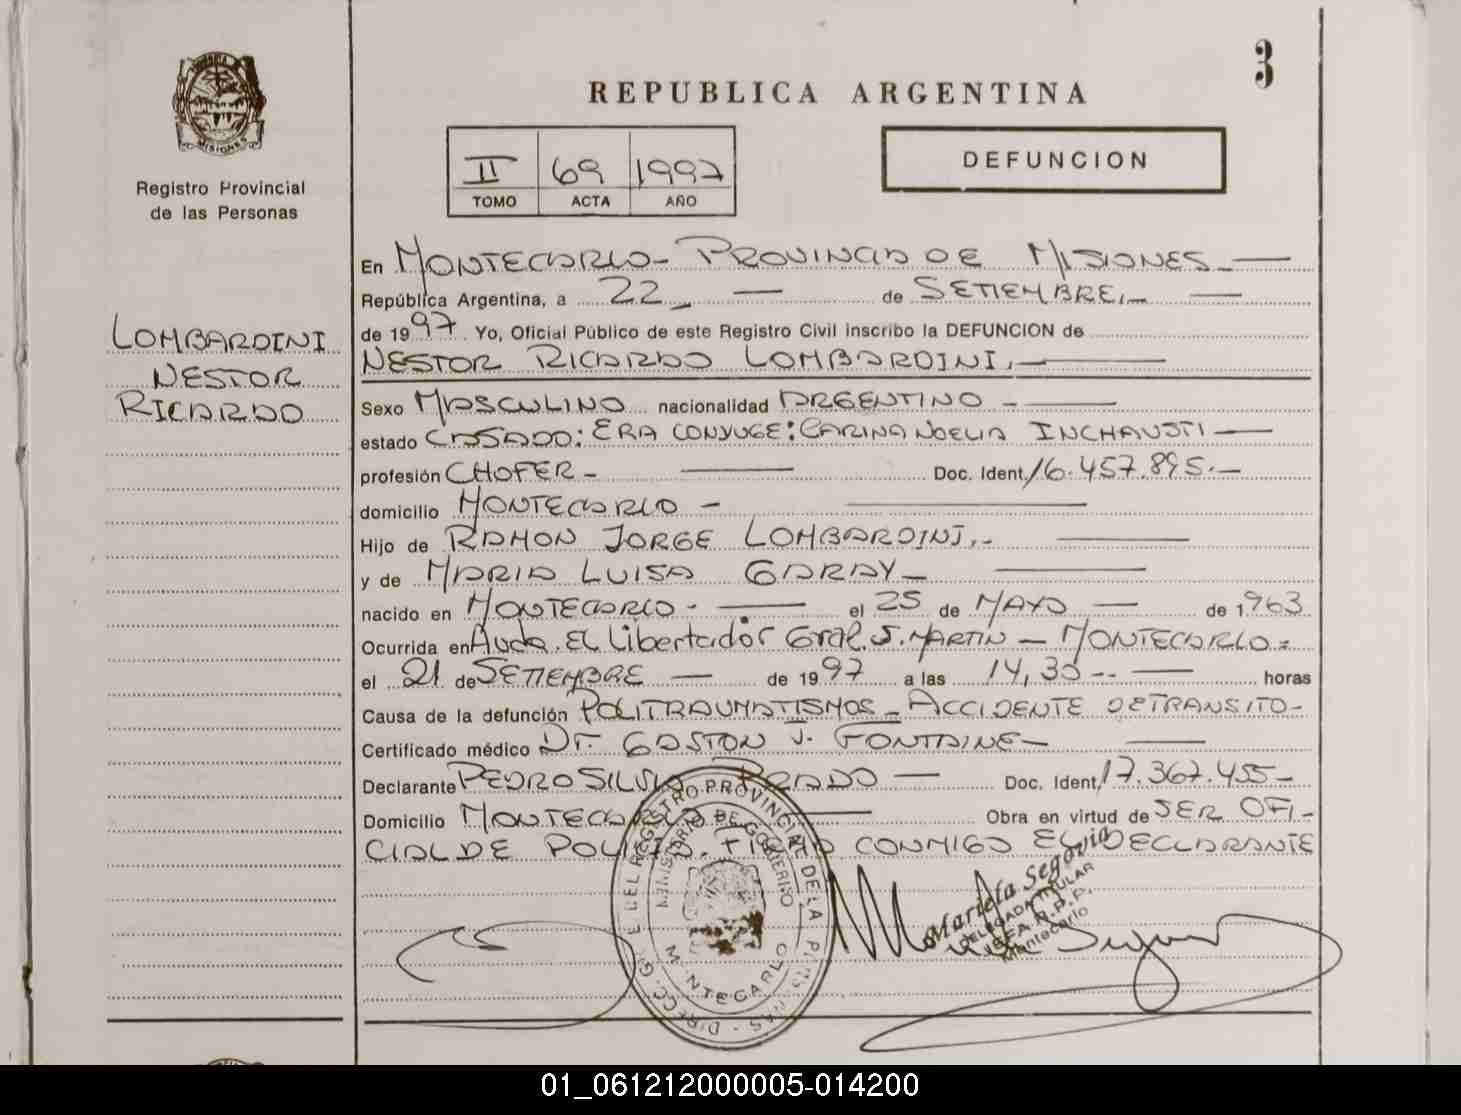 3
REPUBLICA ARGENTINA
MISIONES
Registro Provincial
de las Personas
II 69 1997
TOMO ACTA AÑO
DEFUNCION
LOMBARDINI
NESTOR
RICARDO
En MONTECARLO - PROVINCIA DE MISIONES -
República Argentina, a 22 - de SETIEMBRE. -
de 1997. Yo, Oficial Público de este Registro Civil inscribo la DEFUNCION de
NESTOR RICARDO LOMBARDINI. -
Sexo MASCULINO nacionalidad ARGENTINO -
estado CASADO: ERA CONYUGE: CARINA NOELIA INCHAUSTI -
profesión CHOFER - Doc. Ident. 16.457.895. -
domicilio MONTECARLO -
Hijo de RAMON JORGE LOMBARDINI. -
y de MARIA LUISA GARAY -
nacido en MONTECARLO - el 25 de MAYO - de 1963
Ocurrida en Avda. EL Libertador Gral. S. MARTIN - MONTECARLO =
el 21 de SETIEMBRE - de 1997 a las 14,30 -- horas
Causa de la defunción POLITRAUMATISMOS - ACCIDENTE DE TRANSITO -
Certificado médico DR. GASTON J. FONTAINE -
Declarante PEDRO SILVIO PRADO - Doc. Ident. 17.367.455 -
Domicilio MONTECARLO - Obra en virtud de SER OFI -
CIAL DE POLICIA. FIRMA CONMIGO EL DECLARANTE
DIRECC. GRL. DEL REGISTRO PROVINCIAL DE LA PERSONAS
MINISTERIO DE GOBIERNO
MONTECARLO
Mariela Segovia
DELEGADA TITULAR
JEFA R.P.P.
Montecarlo
01_061212000005-014200